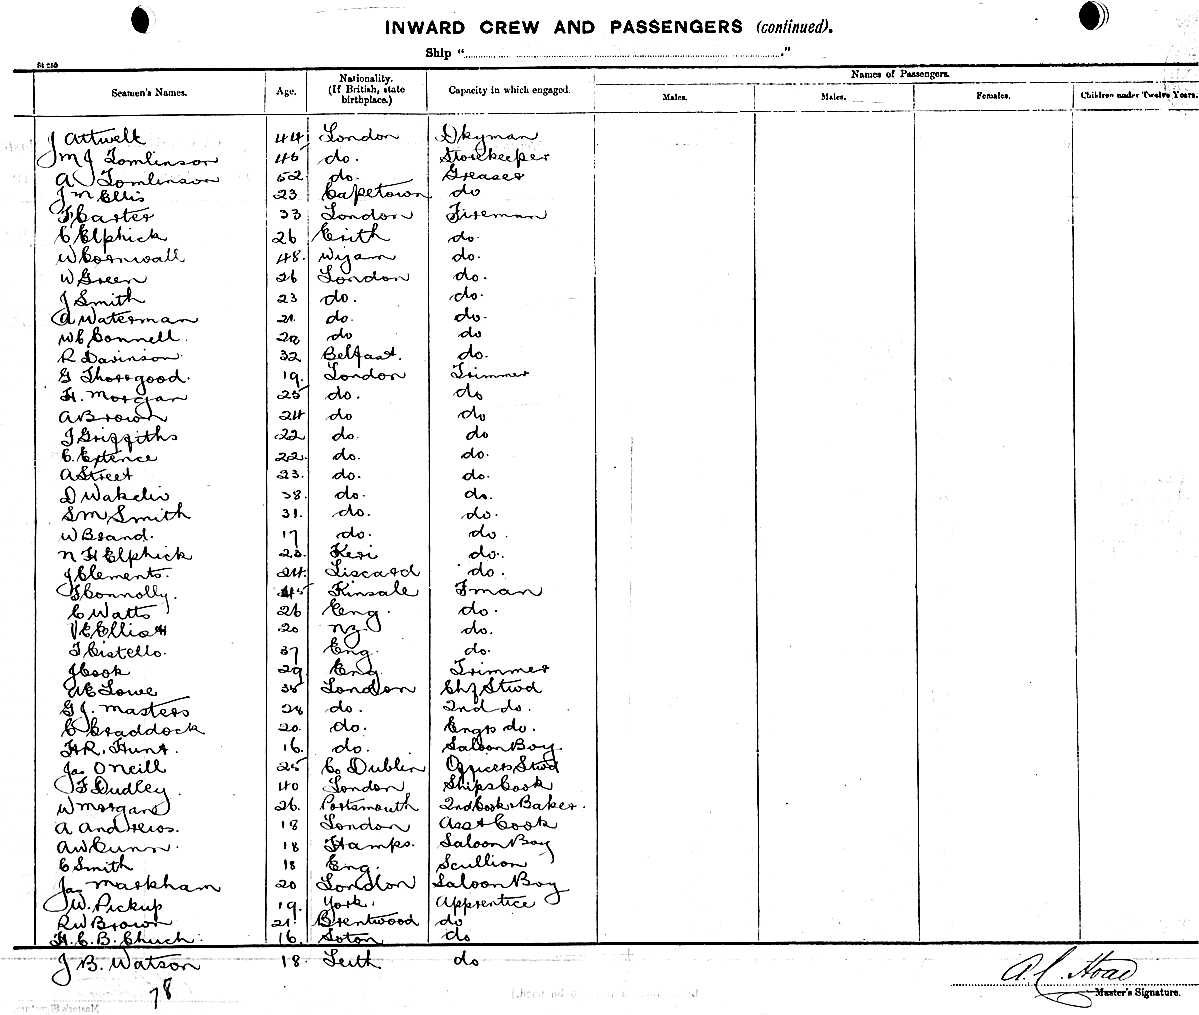 INWARD CREW AND PASSENGERS (continued).
Ship "............"
Seamen's Names. Age. Nationality. (If British, state birthplace.) Capacity in which engaged. Names of Passengers.
Males. Males. Females. Children under Twelve Years.
J Attwell 44 London Dkyman
M J Tomlinson 45 do. Storekeeper
A Tomlinson 52 do. Greaser
J M Ellis 23 Capetown do
F Carter 33 London Fireman
C Elphick 26 Erith do.
W Cornwall 48. Wyam do.
W Green 26 London do.
J Smith 23 do. do.
A Waterman 21. do. do.
W C Connell. do do
R Davinson 32 Belfast. do.
G Thorogood. 19. London Trimmer
H. Morgan 25 do. do
A Brown 24 do do
J Griffiths 22 do. do
C. Expence 22. do. do.
A Street 23. do. do.
D Wakelin 38. do. do.
S M Smith 31. do. do.
W Brand. 17 do. do.
N H Elphick do.
J Clements. 24. Liscard do.
J Connolly. 45 Kinsale Fman
C Watts 26 Eng. do.
V E Elliott 20 NZ. do.
T Costello. 37 Eng. do.
J Cook 29 Eng Trimmer
A E Lowe London Chf Stwd
G J. Masters 28 do. 2nd do.
C Craddock 20. do. Engrs do.
H R. Hunt. 16. do. Saloon Boy.
Jas O'Neill 25 Co Dublin Officers Stwd
F Dudley 40 London Ships Cook
W Morgans 26. Portsmouth 2nd Cook & Baker.
A Andrews. 18 London Asst Cook
A W Cunn. 18 Hamps. Saloon Boy
C Smith 18 Eng. Scullion
Jas Markham 20 London Saloon Boy
J W. Pickup 19. York. Apprentice
R W Brown 21. Brentwood do
H. C. B. Chuch. 16. Soton do
J B. Watson 18. Leith do
78
A. C. Hoad
Master's Signature.